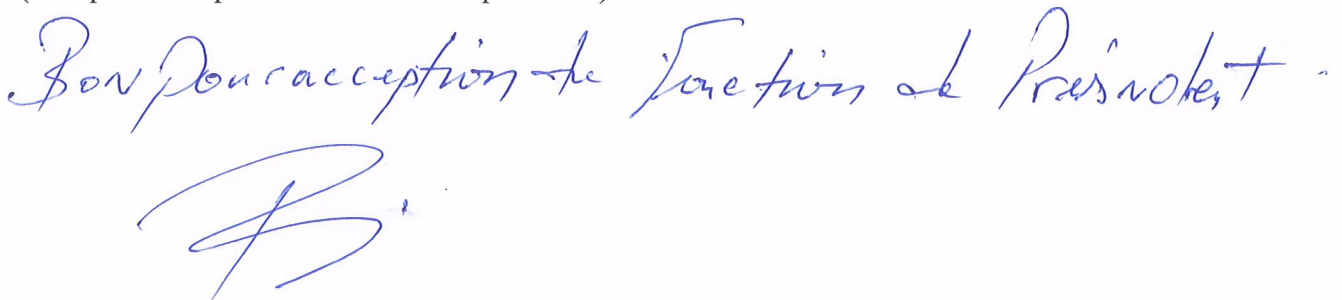 Bon pour acception de Fonction de Président.